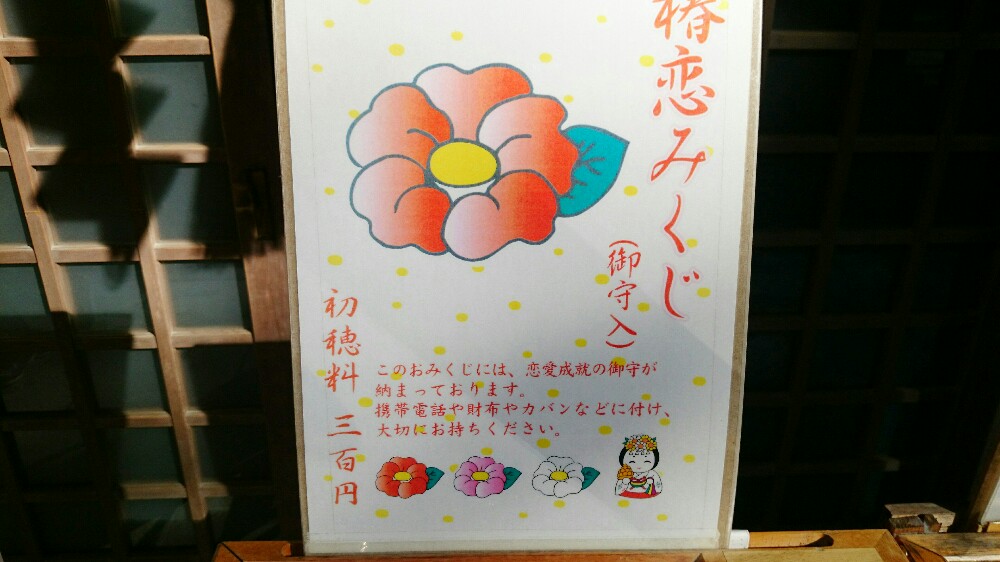 椿恋みくじ
(御守入)
このおみくじには、恋愛成就の御守が
納まっております。
携帯電話や財布やカバンなどに付け、
大切にお持ちください。
初穂料 三百円